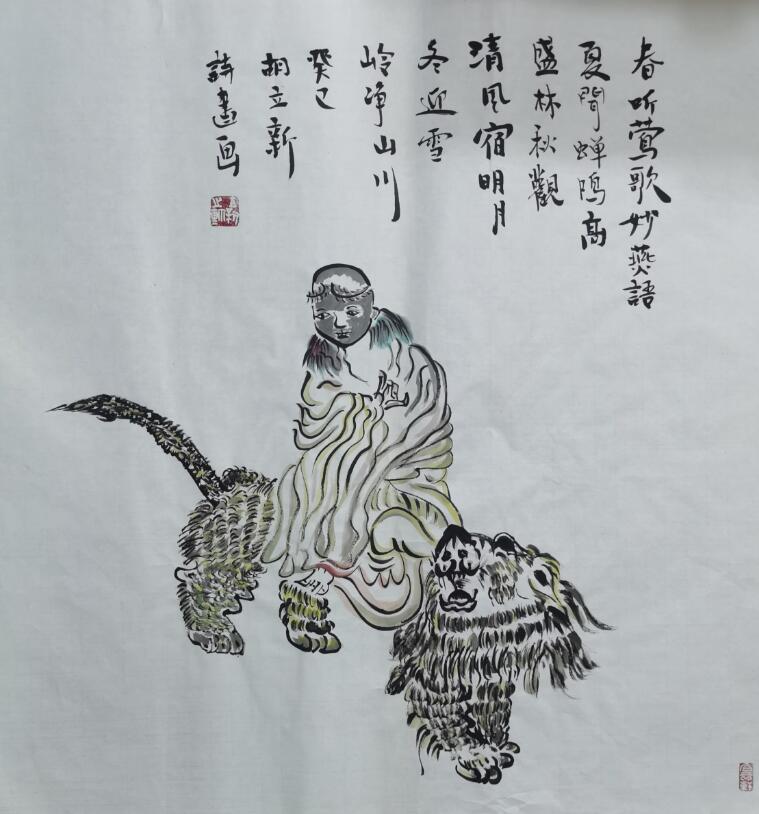 春听莺歌妙燕語
夏間蝉鳴高
盛林秋觀
清風宿明月
冬迎雪
岭净山川
癸巳
胡立新
詩書画